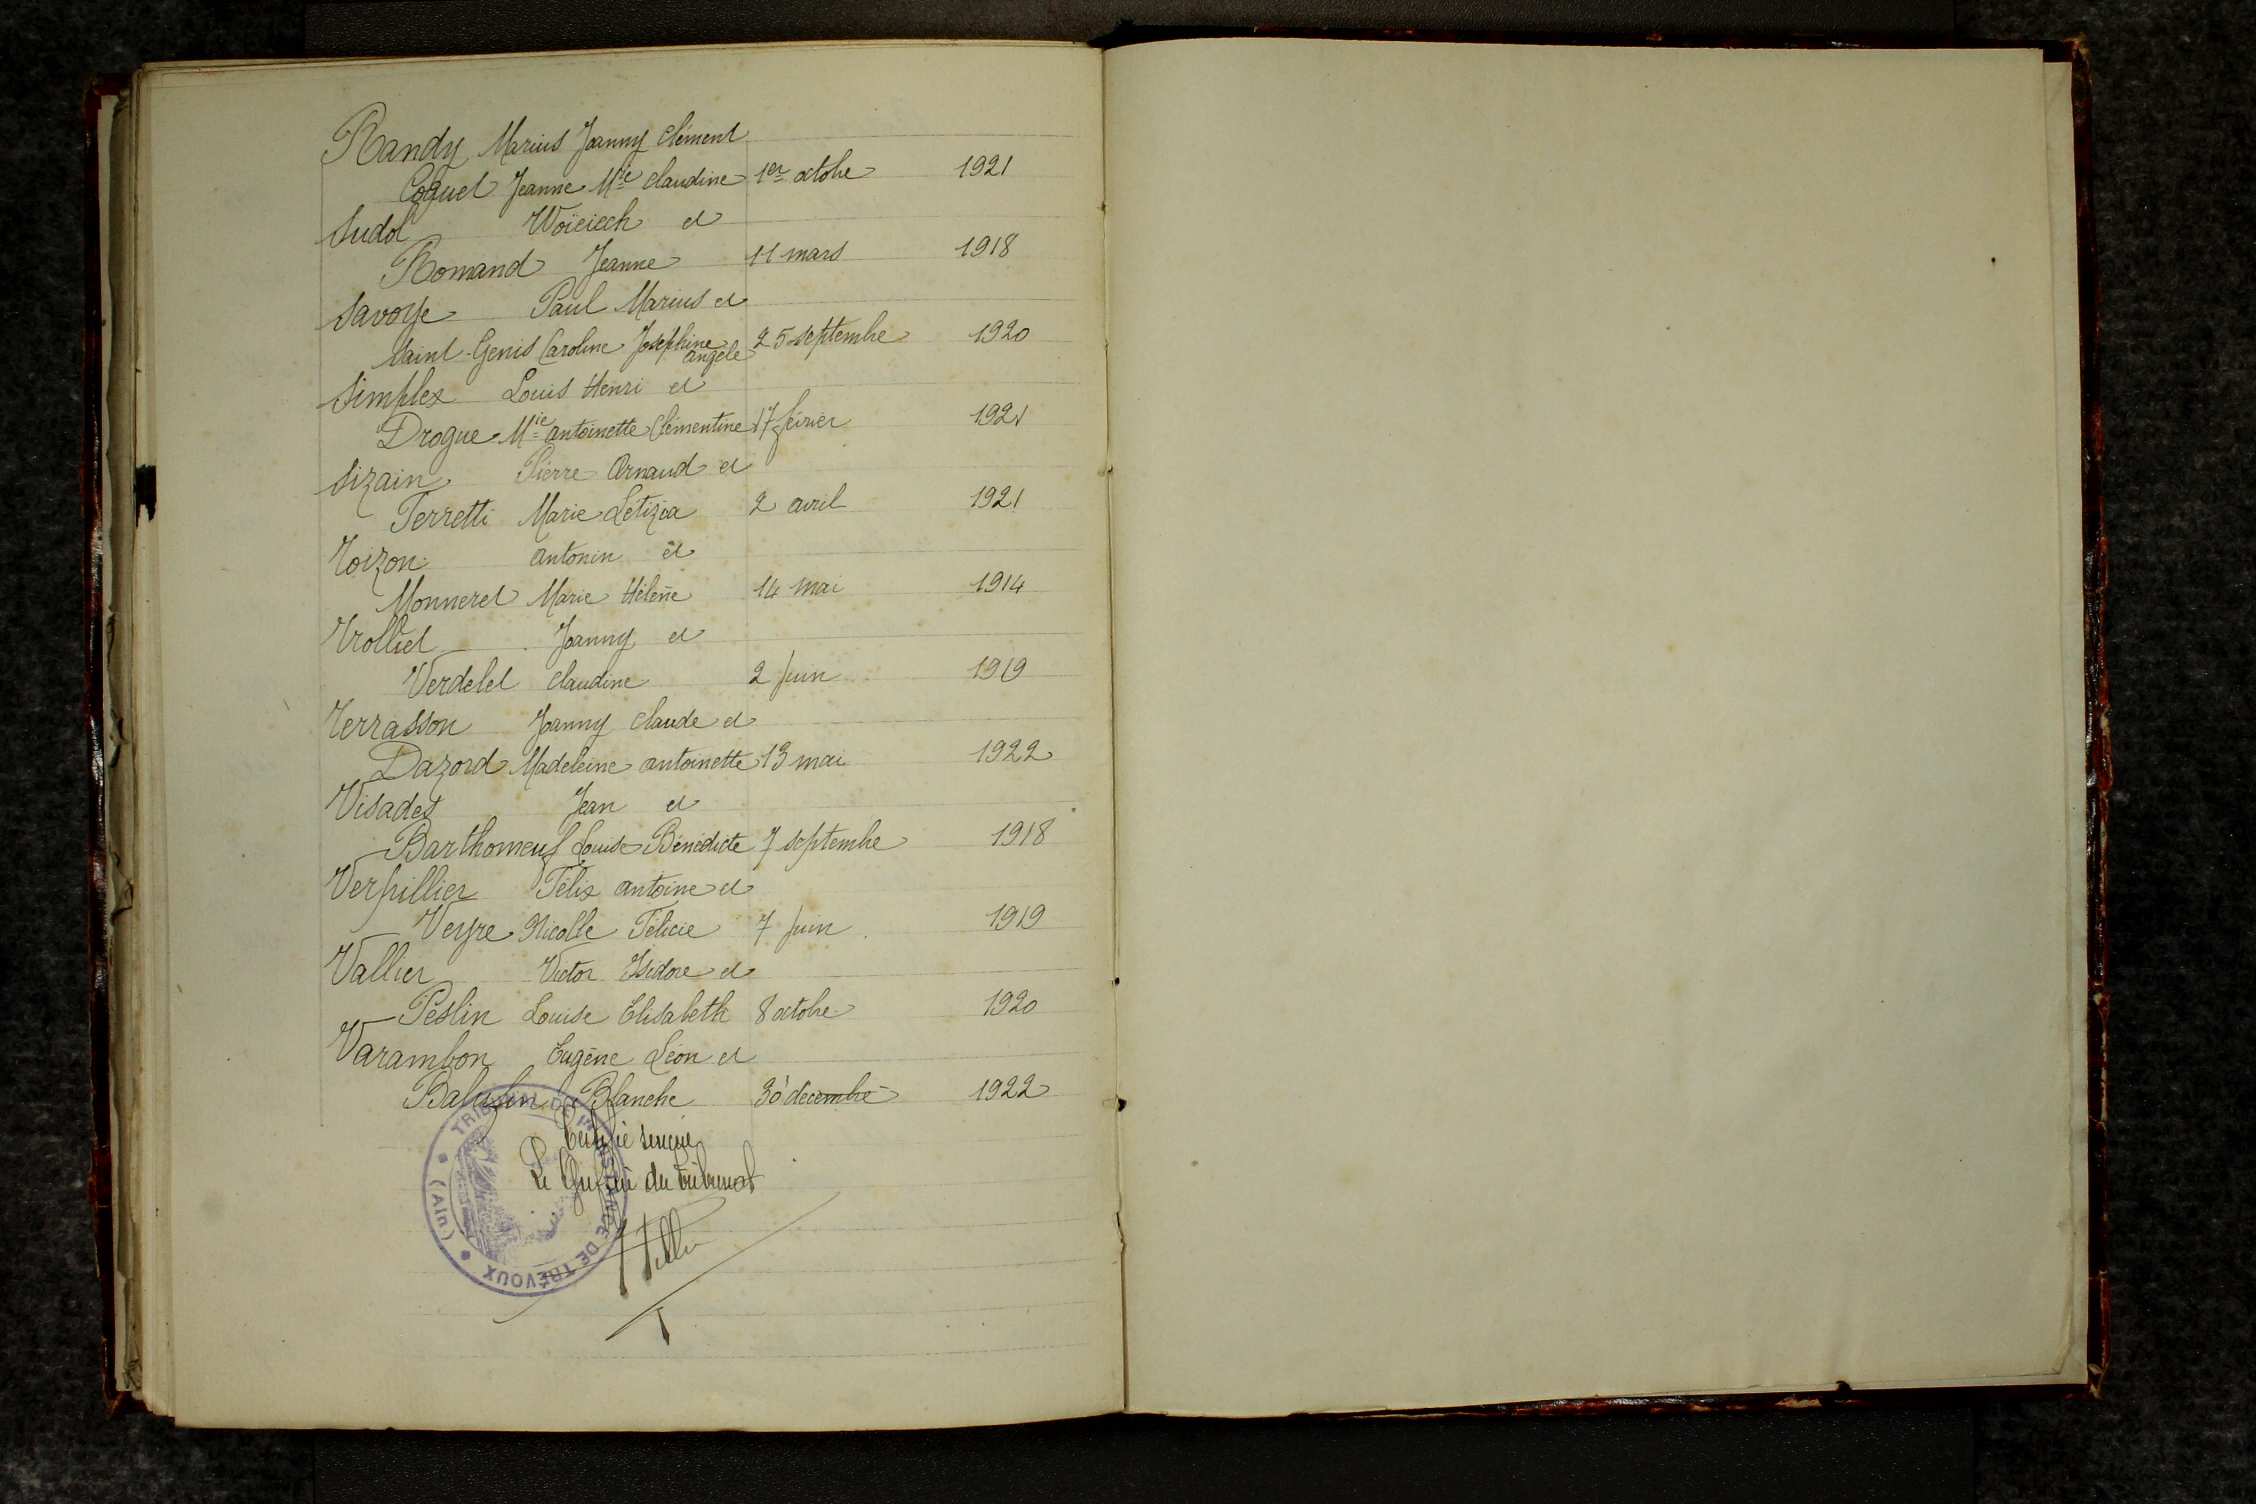 Randy Marius Joanny Clément
Coquet Jeanne Mie Claudine 1er octobre 1921
Sudol Woïciech et
Romand Jeanne 11 mars 1918
Savoye Paul Marius et
Saint-Genis Caroline Joséphine 25 septembre 1920
angèle
Simplex Louis Henri et
Drogue Mie antoinette Clémentine 17 février 1921
Sizain Pierre Arnaud et
Terretti Marie Létizia 2 avril 1921
Toizon antonin et
Monneret Marie Hélène 14 mai 1914
Trolliet Joanny et
Verdelet Claudine 2 juin 1919
Terrasson Joanny Claude et
Dazord Madeleine antoinette 13 mai 1922
Visades Jean et
Barthomeuf Louise Bénédicte 7 septembre 1918
Verpillier Félix antoine et
Veyre Nicolle Félicie 7 juin 1919
Vallier Victor Isidore et
Peslin Louise Elisabeth 8 octobre 1920
Varambon Eugène Léon et
Blanche 30 décembre 1922
Certifié sincère
Le Greffier du Tribunal
TRIBUNAL DE 1RE INSTANCE DE TRÉVOUX
(Ain)